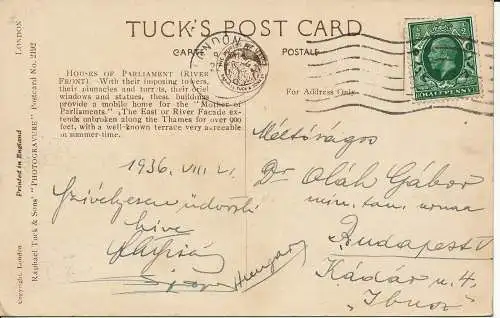 TUCK'S POST CARD
CARTE POSTALE
LONDON
HALFPENNY
HOUSES OF PARLIAMENT (RIVER
FRONT). With their imposing towers,
their pinnacles and turrets, their oriel
windows and statues, these buildings
provide a mobile home for the "Mother of
Parliaments". The East or River Facade ex-
tends unbroken along the Thames for over 900
feet, with a well-known terrace very agreeable
in summer-time.
For Address Only.
LONDON
Raphael Tuck & Sons' "PHOTOGRAVURE" Postcard No. 2192
Copyright, London
Printed in England
1936. VIII.
Szívélyesen üdvözli
híve
Hungary
Méltóságos
Dr Oláh Gábor
min. tan. urnak
Budapest I
Kádár u. 4.
"Ibusz"